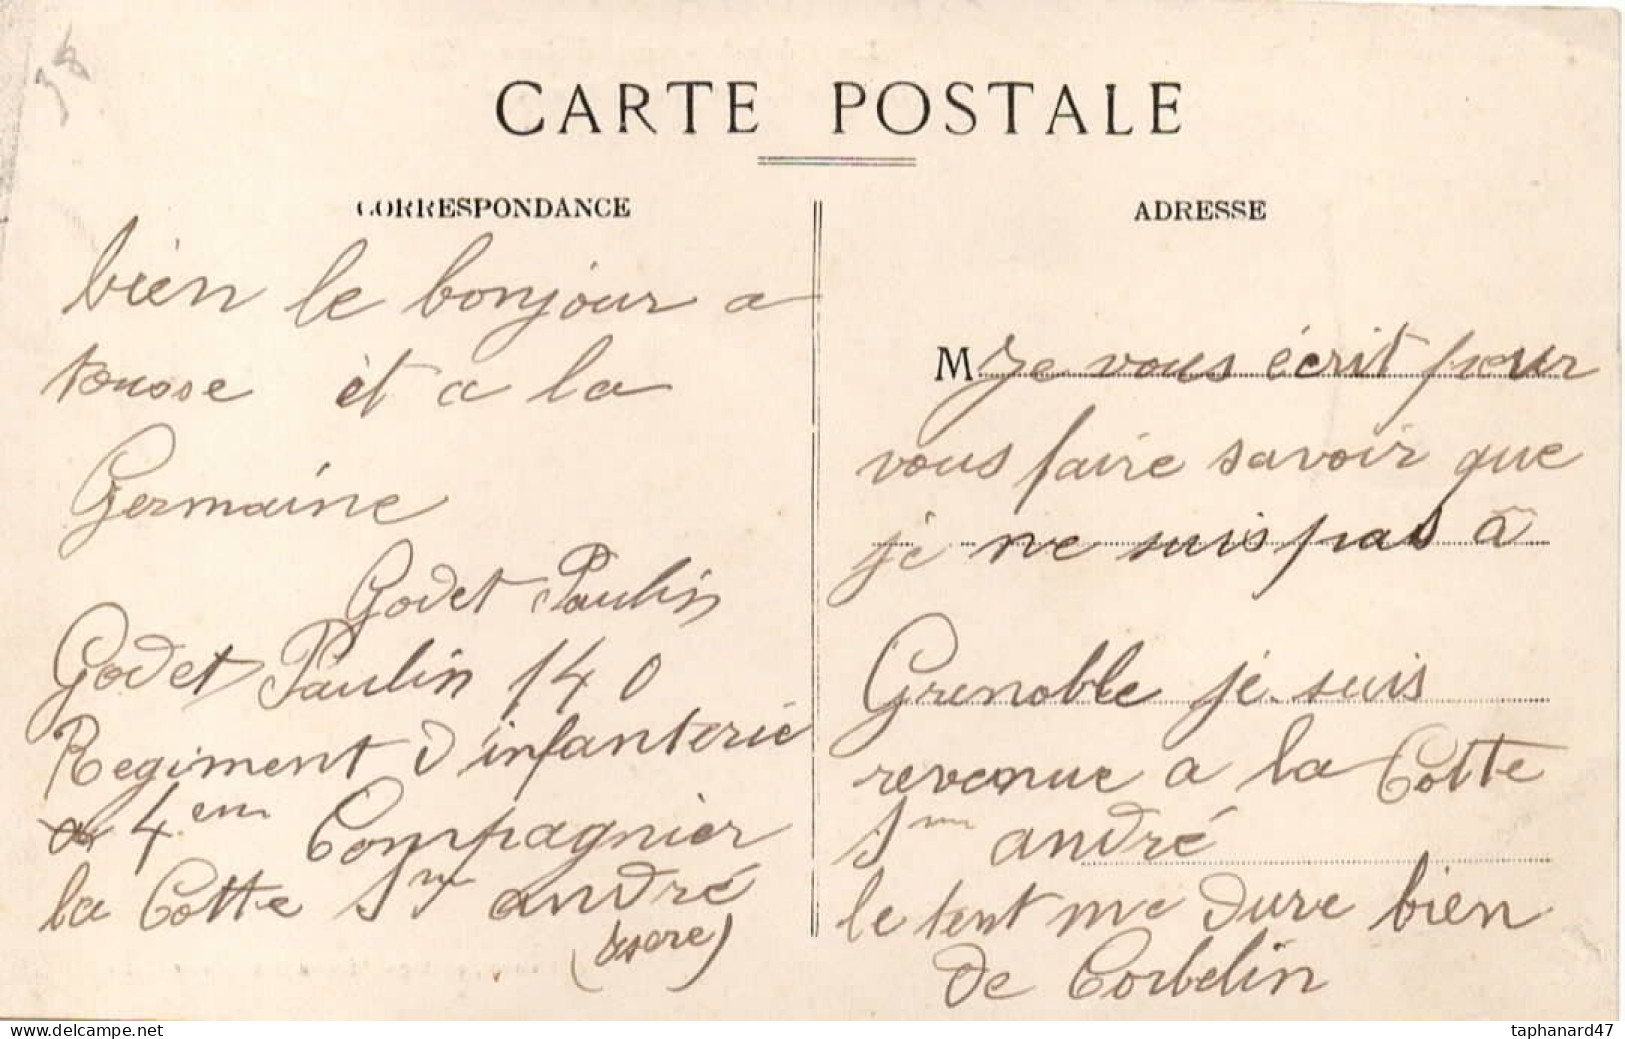 38
CARTE POSTALE
CORRESPONDANCE
bien le bonjour a
tousse èt a la
Germaine
Godet Paulin
Godet Paulin 140
Regiment d infanterie
a 4em Compagnier
la Cotte Sm andré
(Isere)
ADRESSE
M Je vous écrit pour
vous faire savoir que
je ne suis pas a
Grenoble je suis
revenue a la Cotte
Sm andré
le tent me dure bien
de Corbelin
taphanard47